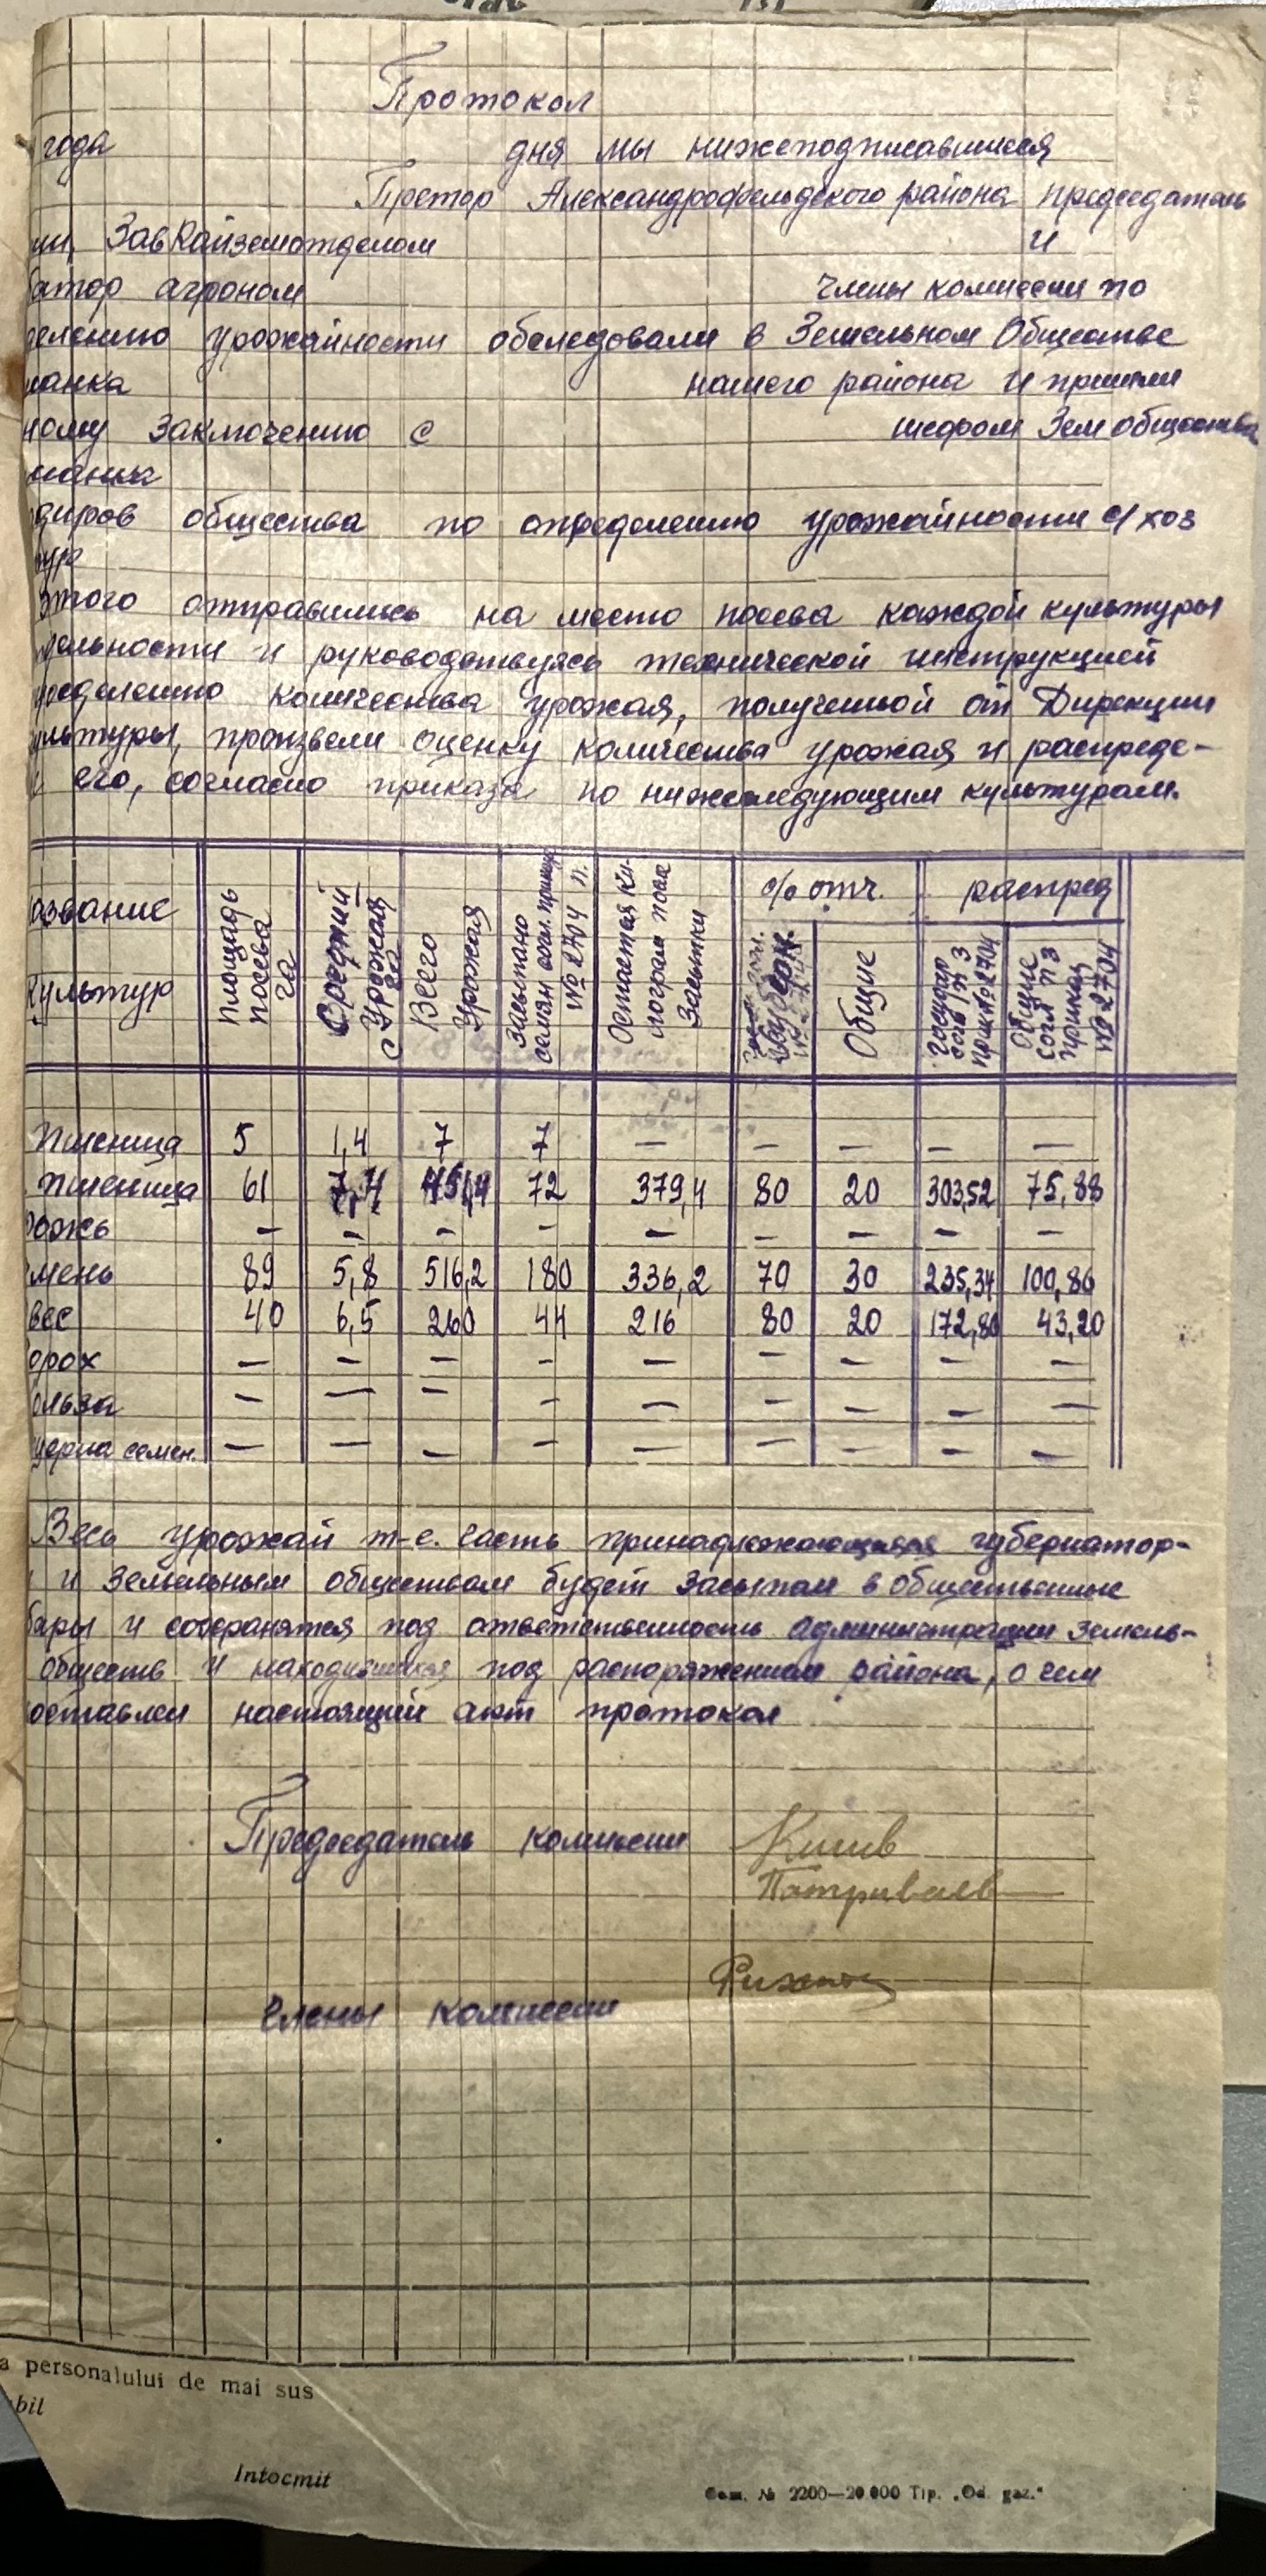 Протокол
года дня мы нижеподписавшиеся
Претор Александрофельдского района председатель
ии, ЗавРайземотделом и
атор агроном Члены комиссии по
делению урожайности обследовали в Земельном Обществе
манка нашего района и пришли
ному заключению с шефом Земобщества
манка
диров общества по определению урожайности с/хоз
тур
этого отправились на место посева каждой культуры
дельности и руководствуясь технической инструкцией
пределению количества урожая, полученной от Дирекции
ультуры, произвели оценку количества урожая и распреде-
и его, согласно приказа по нижеследующим культурам.
азвание культур
Площадь посева га
Средний Урожая с га
Всего Урожая
Засыпано семян согл. приказу № 2704 п.
Остается килограм после Засыпки
% отч.
Губерн.
Общие
распред
Общие согл п 3 приказа № 2704
Пшеница 5 1,4 7 7 — — — — —
пшеница 61 7,4 451,4 72 379,4 80 20 303,52 75,88
рожь — — — — — — — — —
мень 89 5,8 516,2 180 336,2 70 30 235,34 100,86
вес 40 6,5 260 44 216 80 20 172,80 43,20
орох — — — — — — — — —
ольза — — — — — — — — —
церна семен. — — — — — — — — —
Весь урожай т-е. часть принадлежающая губернатор-
и Земельным обществам будет засыпан в общественные
бары и сохранятся под ответственность администрации земель-
обществ и находящихся под распоряжением района, о чем
оставлен настоящий акт протокол
Председатель комиссии
Члены комиссии
a personalului de mai sus
bil
Intocmit
Com. № 2200—20.000 Tip. „Od. gaz."